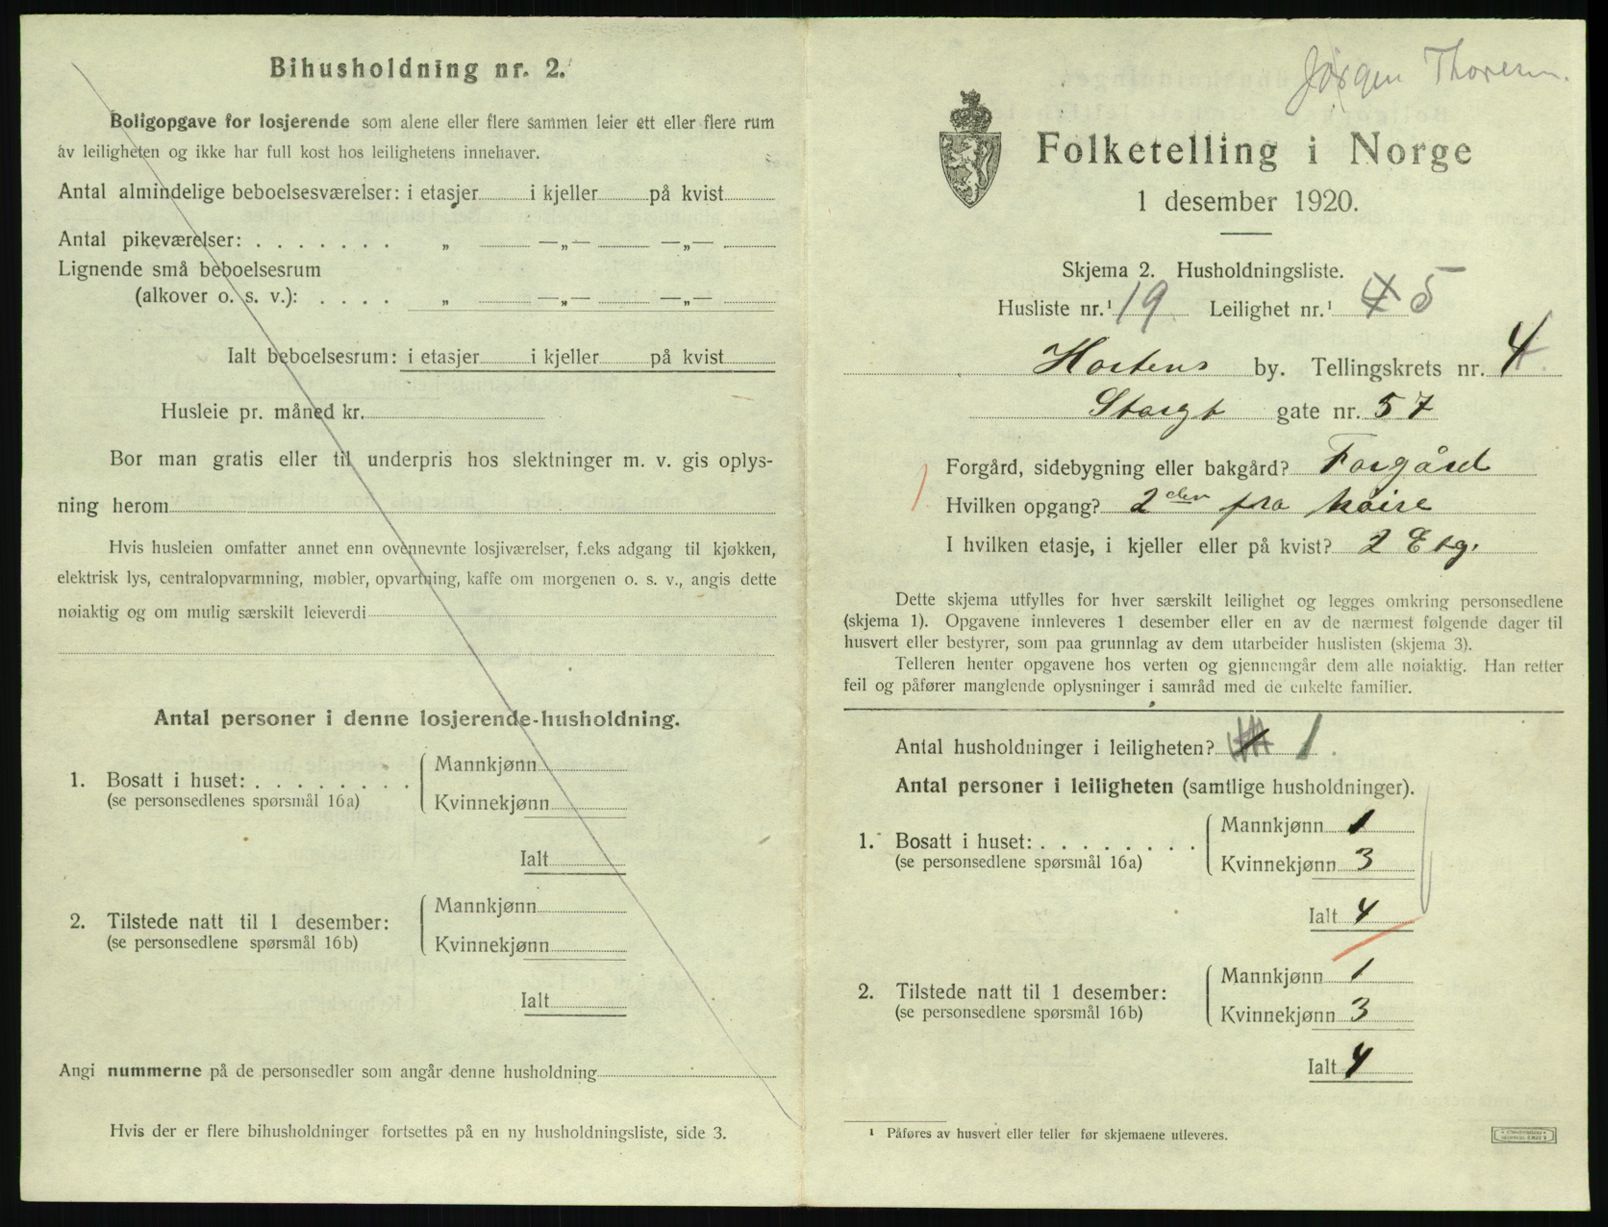 Bihusholdning nr. 2.
Boligopgave for losjerende som alene eller flere sammen leier ett eller flere rum
av leiligheten og ikke har full kost hos leilighetens innehaver.
Antal almindelige beboelsesværelser: i etasjer i kjeller på kvist
Antal pikeværelser: . . . . . . . „ —„— —„—
Lignende små beboelsesrum
(alkover o. s. v.): . . . . „ —„— —„—
Ialt beboelsesrum: i etasjer i kjeller på kvist
Husleie pr. måned kr.
Bor man gratis eller til underpris hos slektninger m. v. gis oplys-
ning herom
Hvis husleien omfatter annet enn ovennevnte losjiværelser, f.eks adgang til kjøkken,
elektrisk lys, centralopvarmning, møbler, opvartning, kaffe om morgenen o. s. v., angis dette
nøiaktig og om mulig særskilt leieverdi
Antal personer i denne losjerende-husholdning.
1. Bosatt i huset: . . . . . . . .
(se personsedlenes spørsmål 16a)
Mannkjønn
Kvinnekjønn
Ialt
2. Tilstede natt til 1 desember:
(se personsedlene spørsmål 16b)
Mannkjønn
Kvinnekjønn
Ialt
Angi nummerne på de personsedler som angår denne husholdning
Hvis der er flere bihusholdninger fortsettes på en ny husholdningsliste, side 3.
Jørgen Thoresen.
Folketelling i Norge
1 desember 1920.
Skjema 2. Husholdningsliste.
Husliste nr.¹ 19 Leilighet nr.¹ 4 5
Hortens by. Tellingskrets nr. 4
Storgt gate nr. 57
Forgård, sidebygning eller bakgård? Forgård
Hvilken opgang? 2 den fra høire
I hvilken etasje, i kjeller eller på kvist? 2 Etg.
Dette skjema utfylles for hver særskilt leilighet og legges omkring personsedlene
(skjema 1). Opgavene innleveres 1 desember eller en av de nærmest følgende dager til
husvert eller bestyrer, som paa grunnlag av dem utarbeider huslisten (skjema 3).
Telleren henter opgavene hos verten og gjennemgår dem alle nøiaktig. Han retter
feil og påfører manglende oplysninger i samråd med de enkelte familier.
Antal husholdninger i leiligheten? 1
Antal personer i leiligheten (samtlige husholdninger).
1. Bosatt i huset: . . . . . . . .
(se personsedlene spørsmål 16a)
Mannkjønn 1
Kvinnekjønn 3
Ialt 4
2. Tilstede natt til 1 desember:
(se personsedlene spørsmål 16b)
Mannkjønn 1
Kvinnekjønn 3
Ialt 4
¹ Påføres av husvert eller teller før skjemaene utleveres.